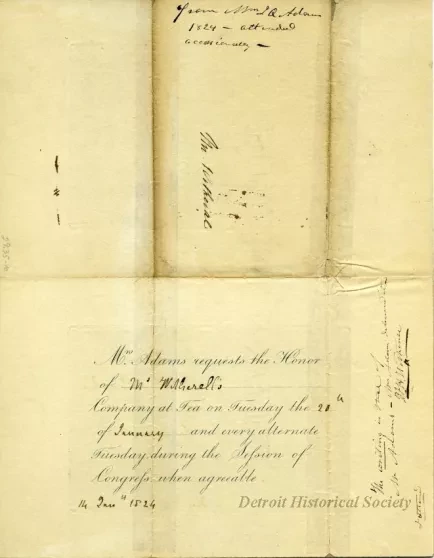 from Mrs J Q Adams
1824 – attended
occasionally –
Mr Witherell
Mrs. Adams requests the Honor
of Mr Witherell's
Company at Tea on Tuesday the 20th
of January and every alternate
Tuesday, during the Session of
Congress, when agreeable.
14 Jany 1824
The writing is that of
Mr Adams –
Detroit Historical Society